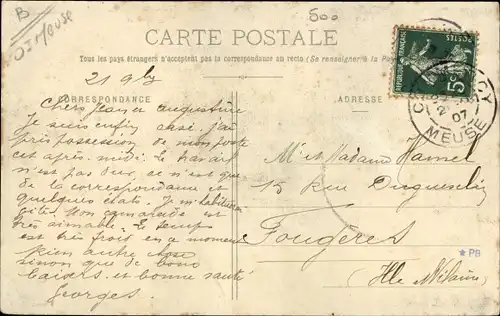 B
D5 Meuse
500
CARTE POSTALE
Tous les pays étrangers n'acceptent pas la correspondance au recto (Se renseigner à la Pos
21 9bre
CORRESPONDANCE
ADRESSE
REPUBLIQUE FRANÇAISE
POSTES
5c
MEUSE
Chers Jean et Augustine
Je suis enfin casé j'ai
pris possession de mon poste
cet après-midi. Le travail
n'est pas dur, ce n'est que
de la correspondance et
quelques états. Je m'habituerai
vite. Mon camarade est
très aimable. Le temps
est très froid en ce moment
Rien autre
sinon que de bons
baisers et bonne santé
Georges.
Mr et Madame Hamel
15 rue Duguesclin
Fougères
(Ille Vilaine)
★PB